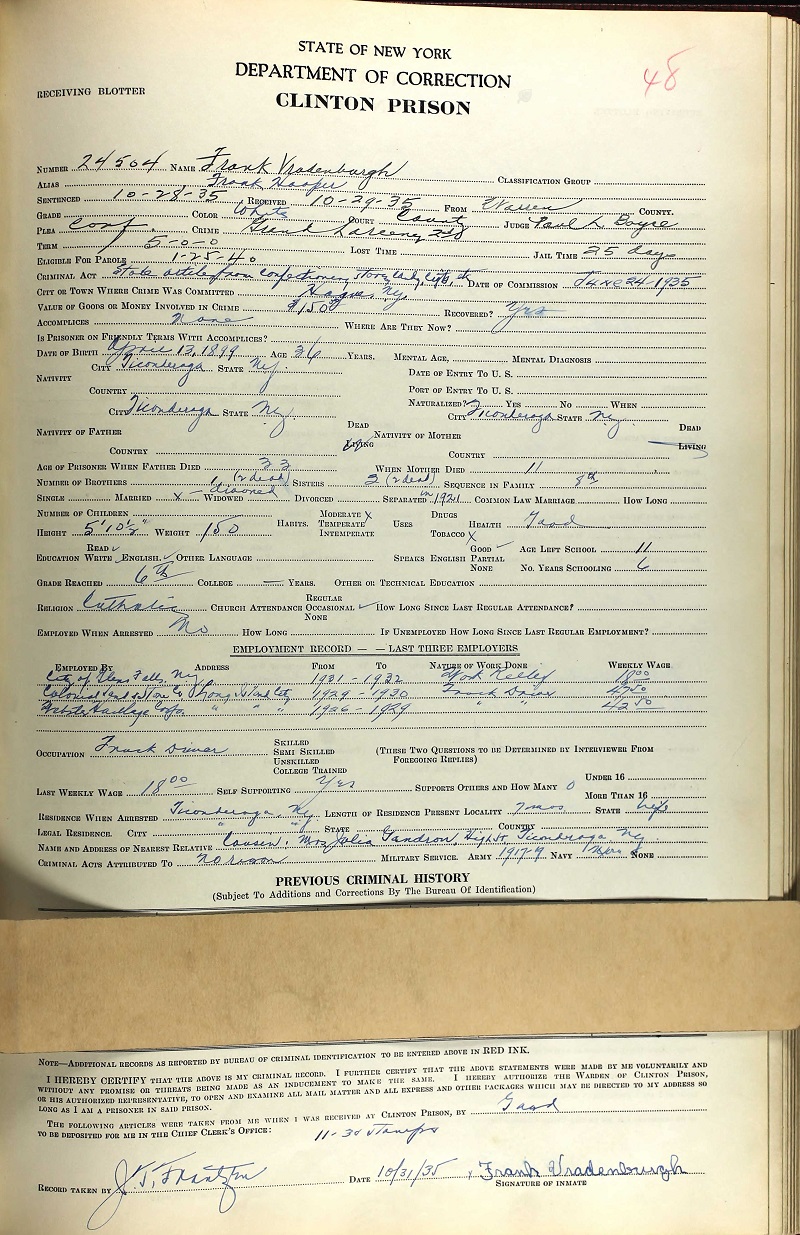 48
STATE OF NEW YORK
DEPARTMENT OF CORRECTION
RECEIVING BLOTTER
CLINTON PRISON
NUMBER 24504 NAME Frank Vradenburgh
ALIAS Frank Hooper CLASSIFICATION GROUP
SENTENCED 10-28-35 RECEIVED 10-29-35 FROM Warren COUNTY.
GRADE COLOR White COURT County JUDGE Paul L Boyce
PLEA Conf. CRIME Grand Larceny 2nd
TERM 5-0-0 LOST TIME JAIL TIME 25 days
ELIGIBLE FOR PAROLE 1-25-40
CRIMINAL ACT Stole articles from confectionery store DATE OF COMMISSION June 24-1935
CITY OR TOWN WHERE CRIME WAS COMMITTED Hague, Ny.
VALUE OF GOODS OR MONEY INVOLVED IN CRIME RECOVERED? Yes
ACCOMPLICES None WHERE ARE THEY NOW?
IS PRISONER ON FRIENDLY TERMS WITH ACCOMPLICES?
DATE OF BIRTH April 13, 1899 AGE 36 YEARS, MENTAL AGE, MENTAL DIAGNOSIS
CITY Ticonderoga STATE Ny. DATE OF ENTRY TO U. S.
NATIVITY
COUNTRY PORT OF ENTRY TO U. S.
NATURALIZED? YES NO WHEN
CITY Ticonderoga STATE Ny CITY Ticonderoga STATE Ny
NATIVITY OF FATHER DEAD LIVING NATIVITY OF MOTHER DEAD LIVING
COUNTRY COUNTRY
AGE OF PRISONER WHEN FATHER DIED 33 WHEN MOTHER DIED 11
NUMBER OF BROTHERS (2 dead) SISTERS (2 dead) SEQUENCE IN FAMILY 8th
SINGLE MARRIED x WIDOWED divorced DIVORCED SEPARATED in 1921 COMMON LAW MARRIAGE HOW LONG
NUMBER OF CHILDREN MODERATE x DRUGS
HEIGHT 5'10½" WEIGHT 150 HABITS. TEMPERATE USES HEALTH Good
INTEMPERATE TOBACCO x
READ ✓ GOOD ✓ AGE LEFT SCHOOL 11
EDUCATION WRITE ENGLISH ✓ OTHER LANGUAGE SPEAKS ENGLISH PARTIAL
NONE NO. YEARS SCHOOLING 6
GRADE REACHED 6th COLLEGE — YEARS. OTHER OR TECHNICAL EDUCATION
REGULAR
RELIGION Catholic CHURCH ATTENDANCE OCCASIONAL ✓ HOW LONG SINCE LAST REGULAR ATTENDANCE?
NONE
EMPLOYED WHEN ARRESTED No HOW LONG IF UNEMPLOYED HOW LONG SINCE LAST REGULAR EMPLOYMENT?
EMPLOYMENT RECORD — — LAST THREE EMPLOYERS
EMPLOYED BY ADDRESS FROM TO NATURE OF WORK DONE WEEKLY WAGE
City of Glens Falls, Ny. 1931 - 1932 Work Relief 18 00
Colonial Sand & Stone Co Long Island City 1929 - 1930 Truck Driver
Haulage Corp. " " " 1926 - 1929 " " 42 50
OCCUPATION Truck Driver SKILLED
SEMI SKILLED (THESE TWO QUESTIONS TO BE DETERMINED BY INTERVIEWER FROM
UNSKILLED FOREGOING REPLIES)
COLLEGE TRAINED
UNDER 16
LAST WEEKLY WAGE 18 00 SELF SUPPORTING Yes SUPPORTS OTHERS AND HOW MANY 0
MORE THAN 16
RESIDENCE WHEN ARRESTED Ticonderoga, Ny LENGTH OF RESIDENCE PRESENT LOCALITY 7 mos STATE Life
LEGAL RESIDENCE. CITY " STATE " COUNTRY
NAME AND ADDRESS OF NEAREST RELATIVE Cousin: Mrs Julia Gandron, High St Ticonderoga Ny.
CRIMINAL ACTS ATTRIBUTED TO No reason MILITARY SERVICE. ARMY 1917-9 NAVY NONE
PREVIOUS CRIMINAL HISTORY
(Subject To Additions and Corrections By The Bureau Of Identification)
NOTE—ADDITIONAL RECORDS AS REPORTED BY BUREAU OF CRIMINAL IDENTIFICATION TO BE ENTERED ABOVE IN RED INK.
I HEREBY CERTIFY THAT THE ABOVE IS MY CRIMINAL RECORD. I FURTHER CERTIFY THAT THE ABOVE STATEMENTS WERE MADE BY ME VOLUNTARILY AND
WITHOUT ANY PROMISE OR THREATS BEING MADE AS AN INDUCEMENT TO MAKE THE SAME. I HEREBY AUTHORIZE THE WARDEN OF CLINTON PRISON,
OR HIS AUTHORIZED REPRESENTATIVE, TO OPEN AND EXAMINE ALL MAIL MATTER AND ALL EXPRESS AND OTHER PACKAGES WHICH MAY BE DIRECTED TO MY ADDRESS SO
LONG AS I AM A PRISONER IN SAID PRISON.
THE FOLLOWING ARTICLES WERE TAKEN FROM ME WHEN I WAS RECEIVED AT CLINTON PRISON, BY Good
TO BE DEPOSITED FOR ME IN THE CHIEF CLERK'S OFFICE: 11-3¢ stamps
RECORD TAKEN BY J. T. Frantzen DATE 10/31/35 Frank Vradenburgh
SIGNATURE OF INMATE